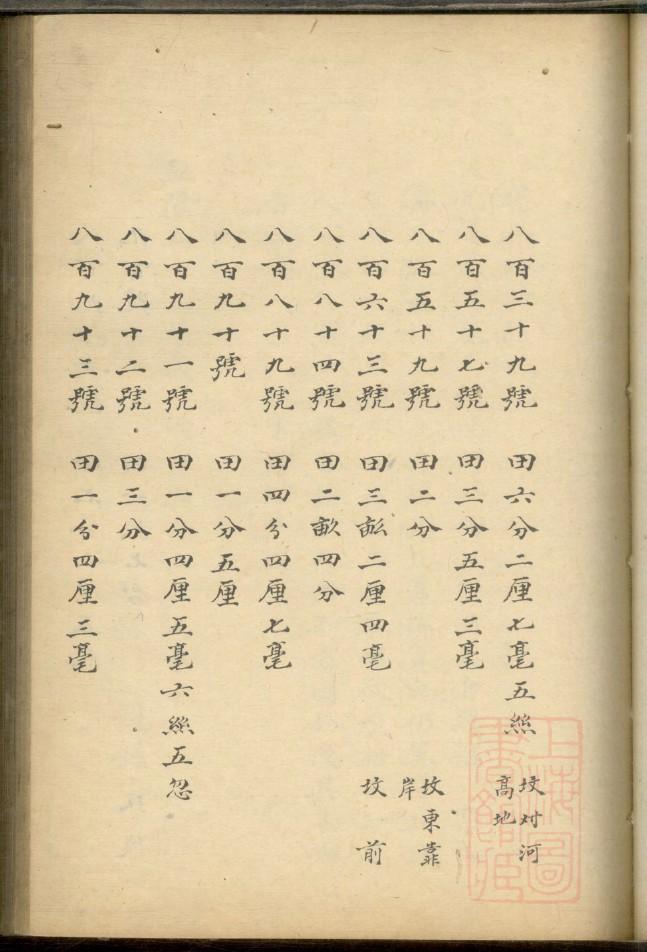 八百三十九號 田六分二厘七毫五絲 坟对河高地
八百五十七號 田三分五厘三毫
八百五十九號 田二分 坟東靠岸
八百六十三號 田三畝二厘四毫 坟前
八百八十四號 田二畝四分
八百八十九號 田四分四厘七毫
八百九十號 田一分五厘
八百九十一號 田一分四厘五毫六絲五忽
八百九十二號 田三分
八百九十三號 田一分四厘三毫
上海圖書館藏